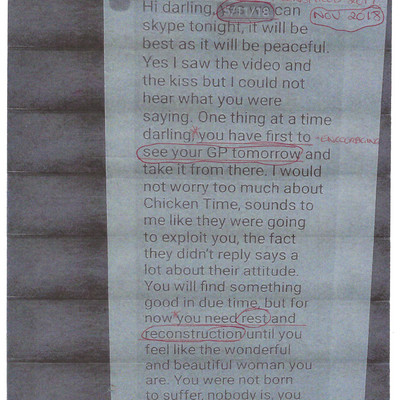 NOV 2018
Hi darling, 15/11/18 can
skype tonight, it will be
best as it will be peaceful.
Yes I saw the video and
the kiss but I could not
hear what you were
saying. One thing at a time
darling x you have first to
see your GP tomorrow and
take it from there. I would
not worry too much about
Chicken Time, sounds to
me like they were going
to exploit you, the fact
they didn't reply says a
lot about their attitude.
You will find something
good in due time, but for
now x you need rest and
reconstruction until you
feel like the wonderful
and beautiful woman you
are. You were not born
to suffer, nobody is, you